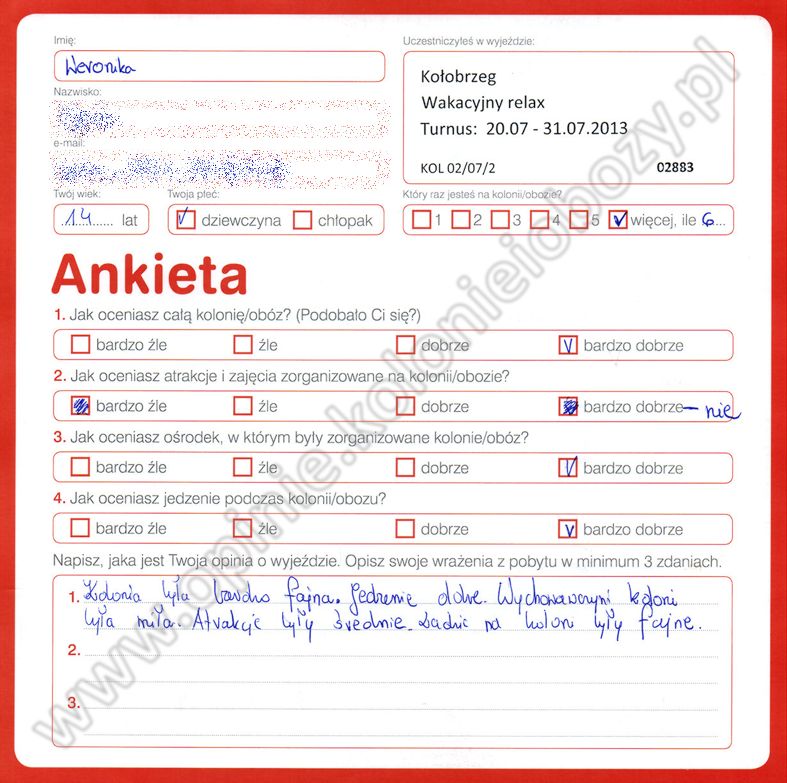 Imię:
Weronika
Uczestniczyłeś w wyjeździe:
Kołobrzeg
Wakacyjny relax
Turnus: 20.07 - 31.07.2013
KOL 02/07/2 02883
Nazwisko:
e-mail:
Twój wiek:
14 lat
Twoja płeć:
dziewczyna chłopak
Który raz jesteś na kolonii/obozie?
1 2 3 4 5 więcej, ile 6...
Ankieta
1. Jak oceniasz całą kolonię/obóz? (Podobało Ci się?)
bardzo źle źle dobrze bardzo dobrze
2. Jak oceniasz atrakcje i zajęcia zorganizowane na kolonii/obozie?
bardzo źle źle dobrze bardzo dobrze – nie
3. Jak oceniasz ośrodek, w którym były zorganizowane kolonie/obóz?
bardzo źle źle dobrze bardzo dobrze
4. Jak oceniasz jedzenie podczas kolonii/obozu?
bardzo źle źle dobrze bardzo dobrze
Napisz, jaka jest Twoja opinia o wyjeździe. Opisz swoje wrażenia z pobytu w minimum 3 zdaniach.
1. Kolonia była bardzo fajna. Jedzenie dobre. Wychowawczyni koloni
była miła. Atrakcje były średnie. na koloni były fajne.
2.
3.
www.opinie.kolonieiobozy.pl